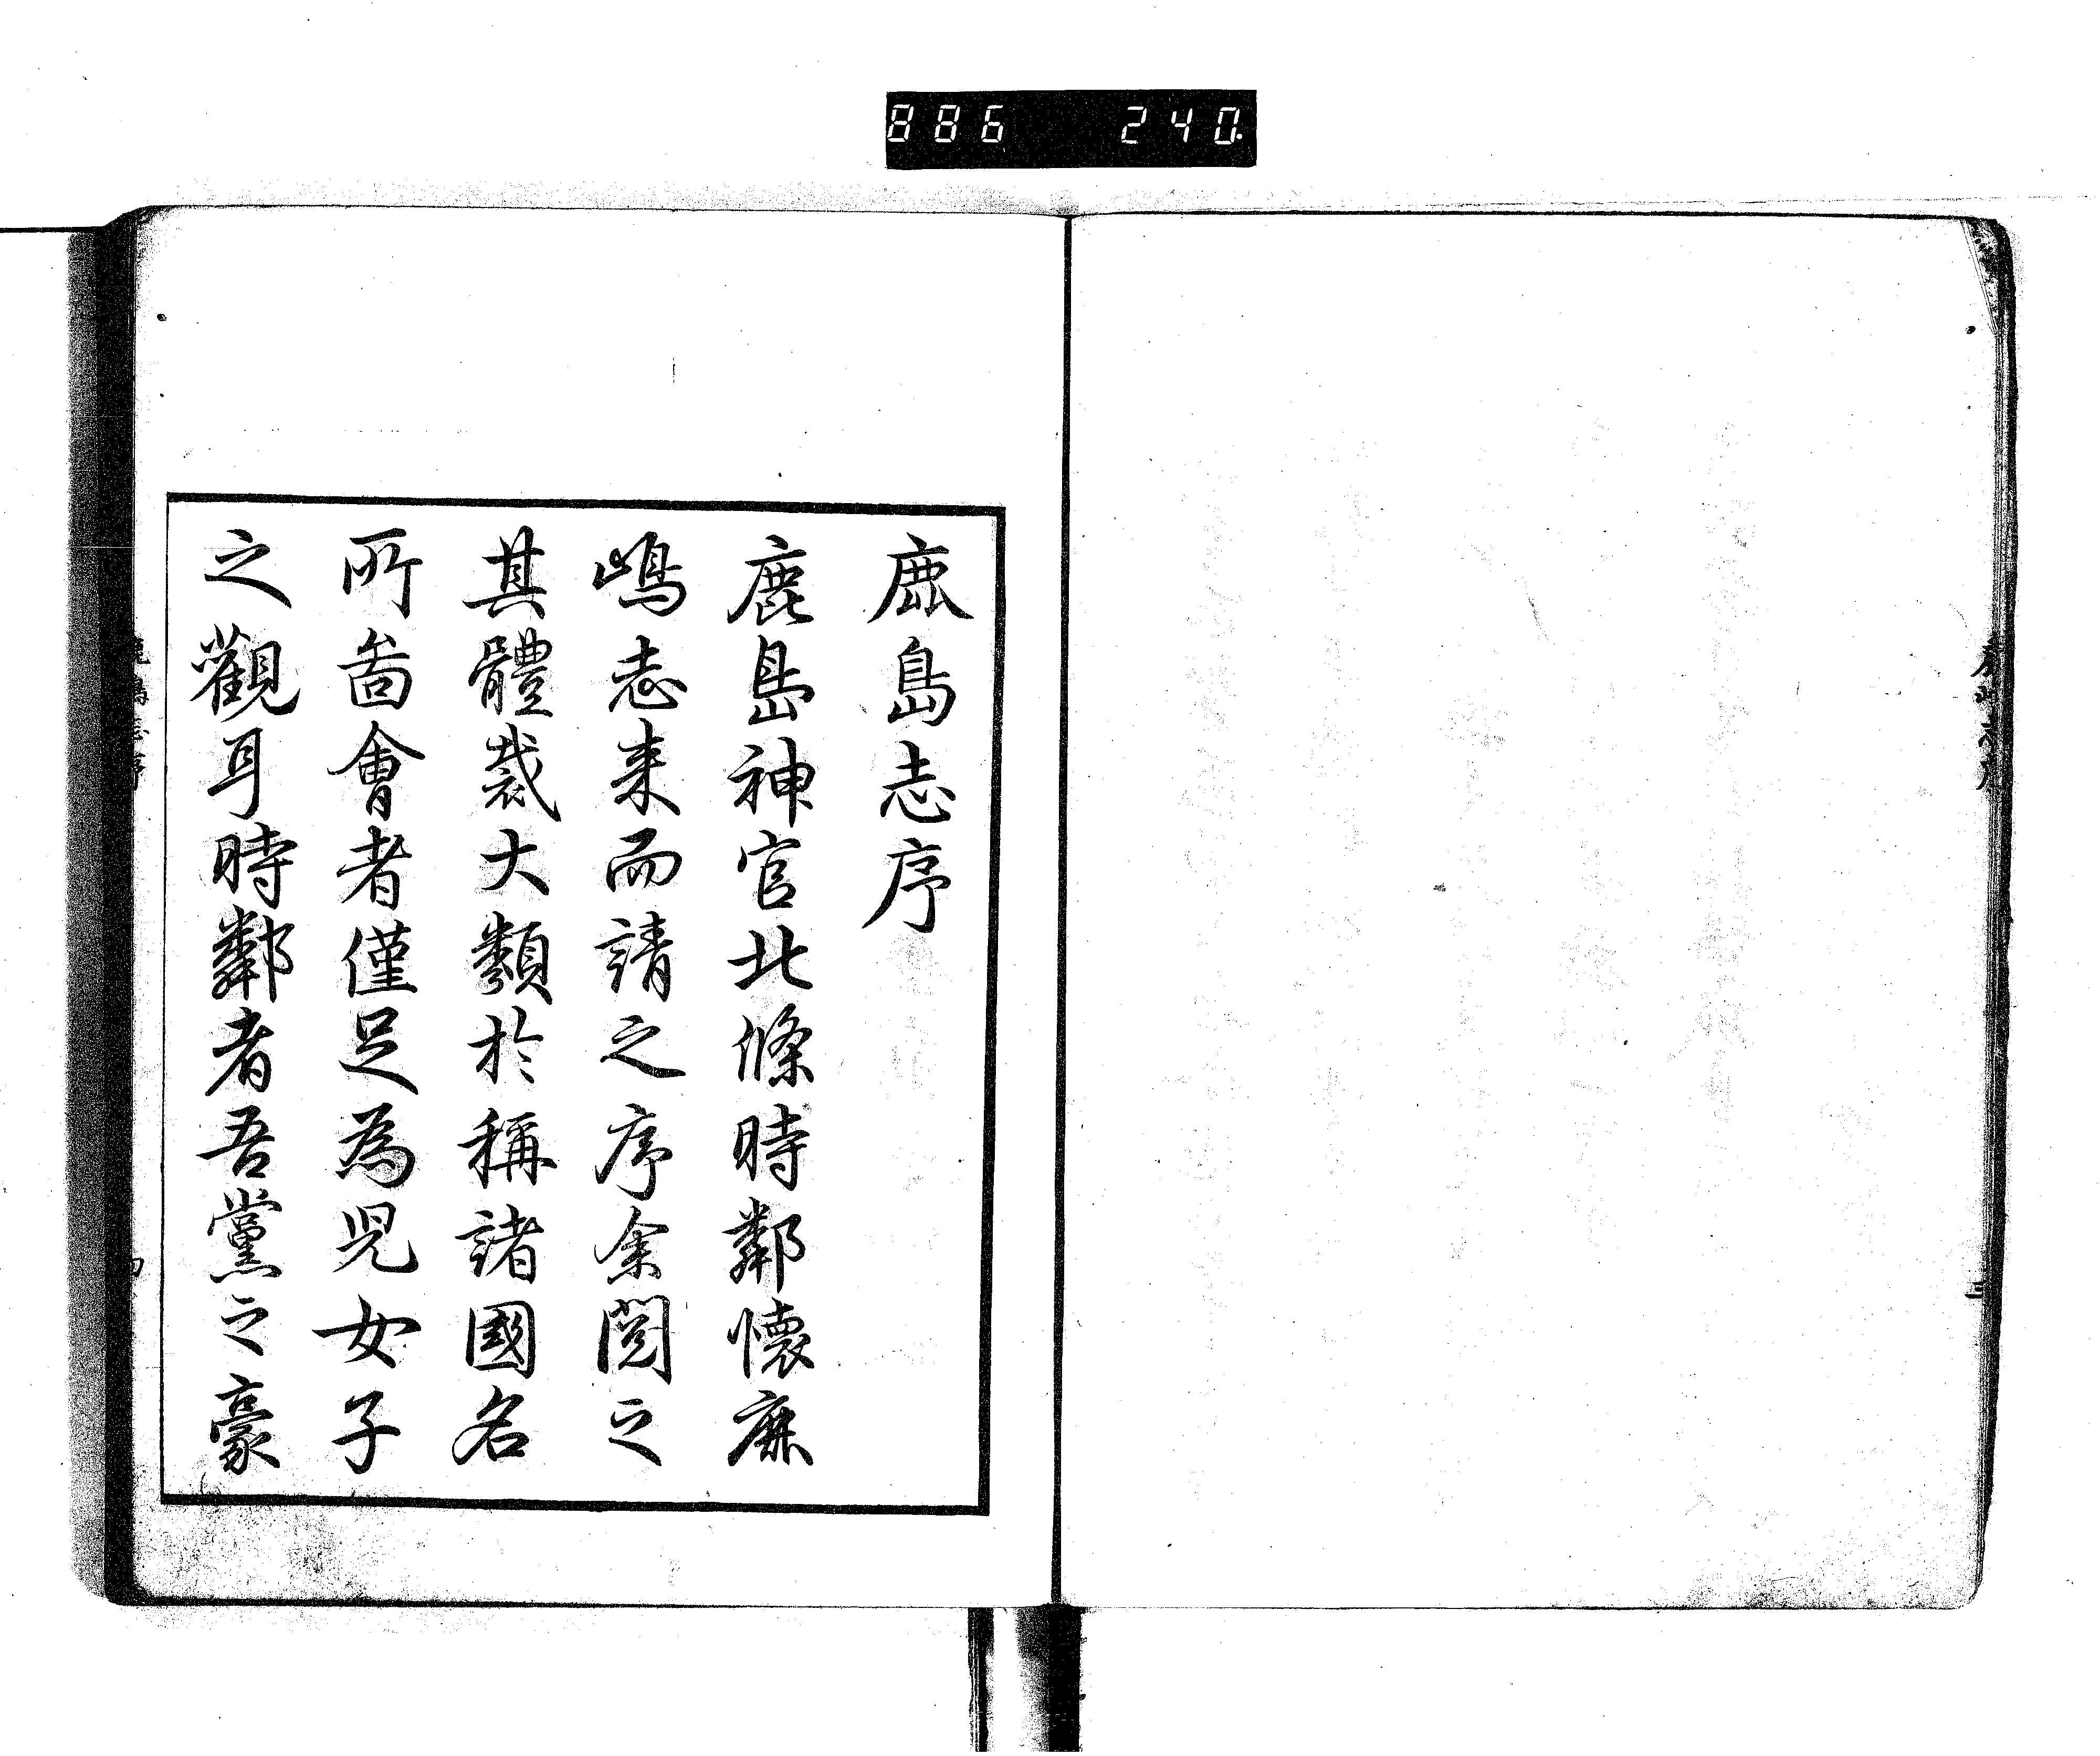 886 240
鹿島志序
鹿島神官北條時鄰懷鹿
嶋志来而請之序余閱之
其體裁大類於稱諸國名
所啚會者僅足為児女子
之觀耳時鄰者吾黨之豪
三
四